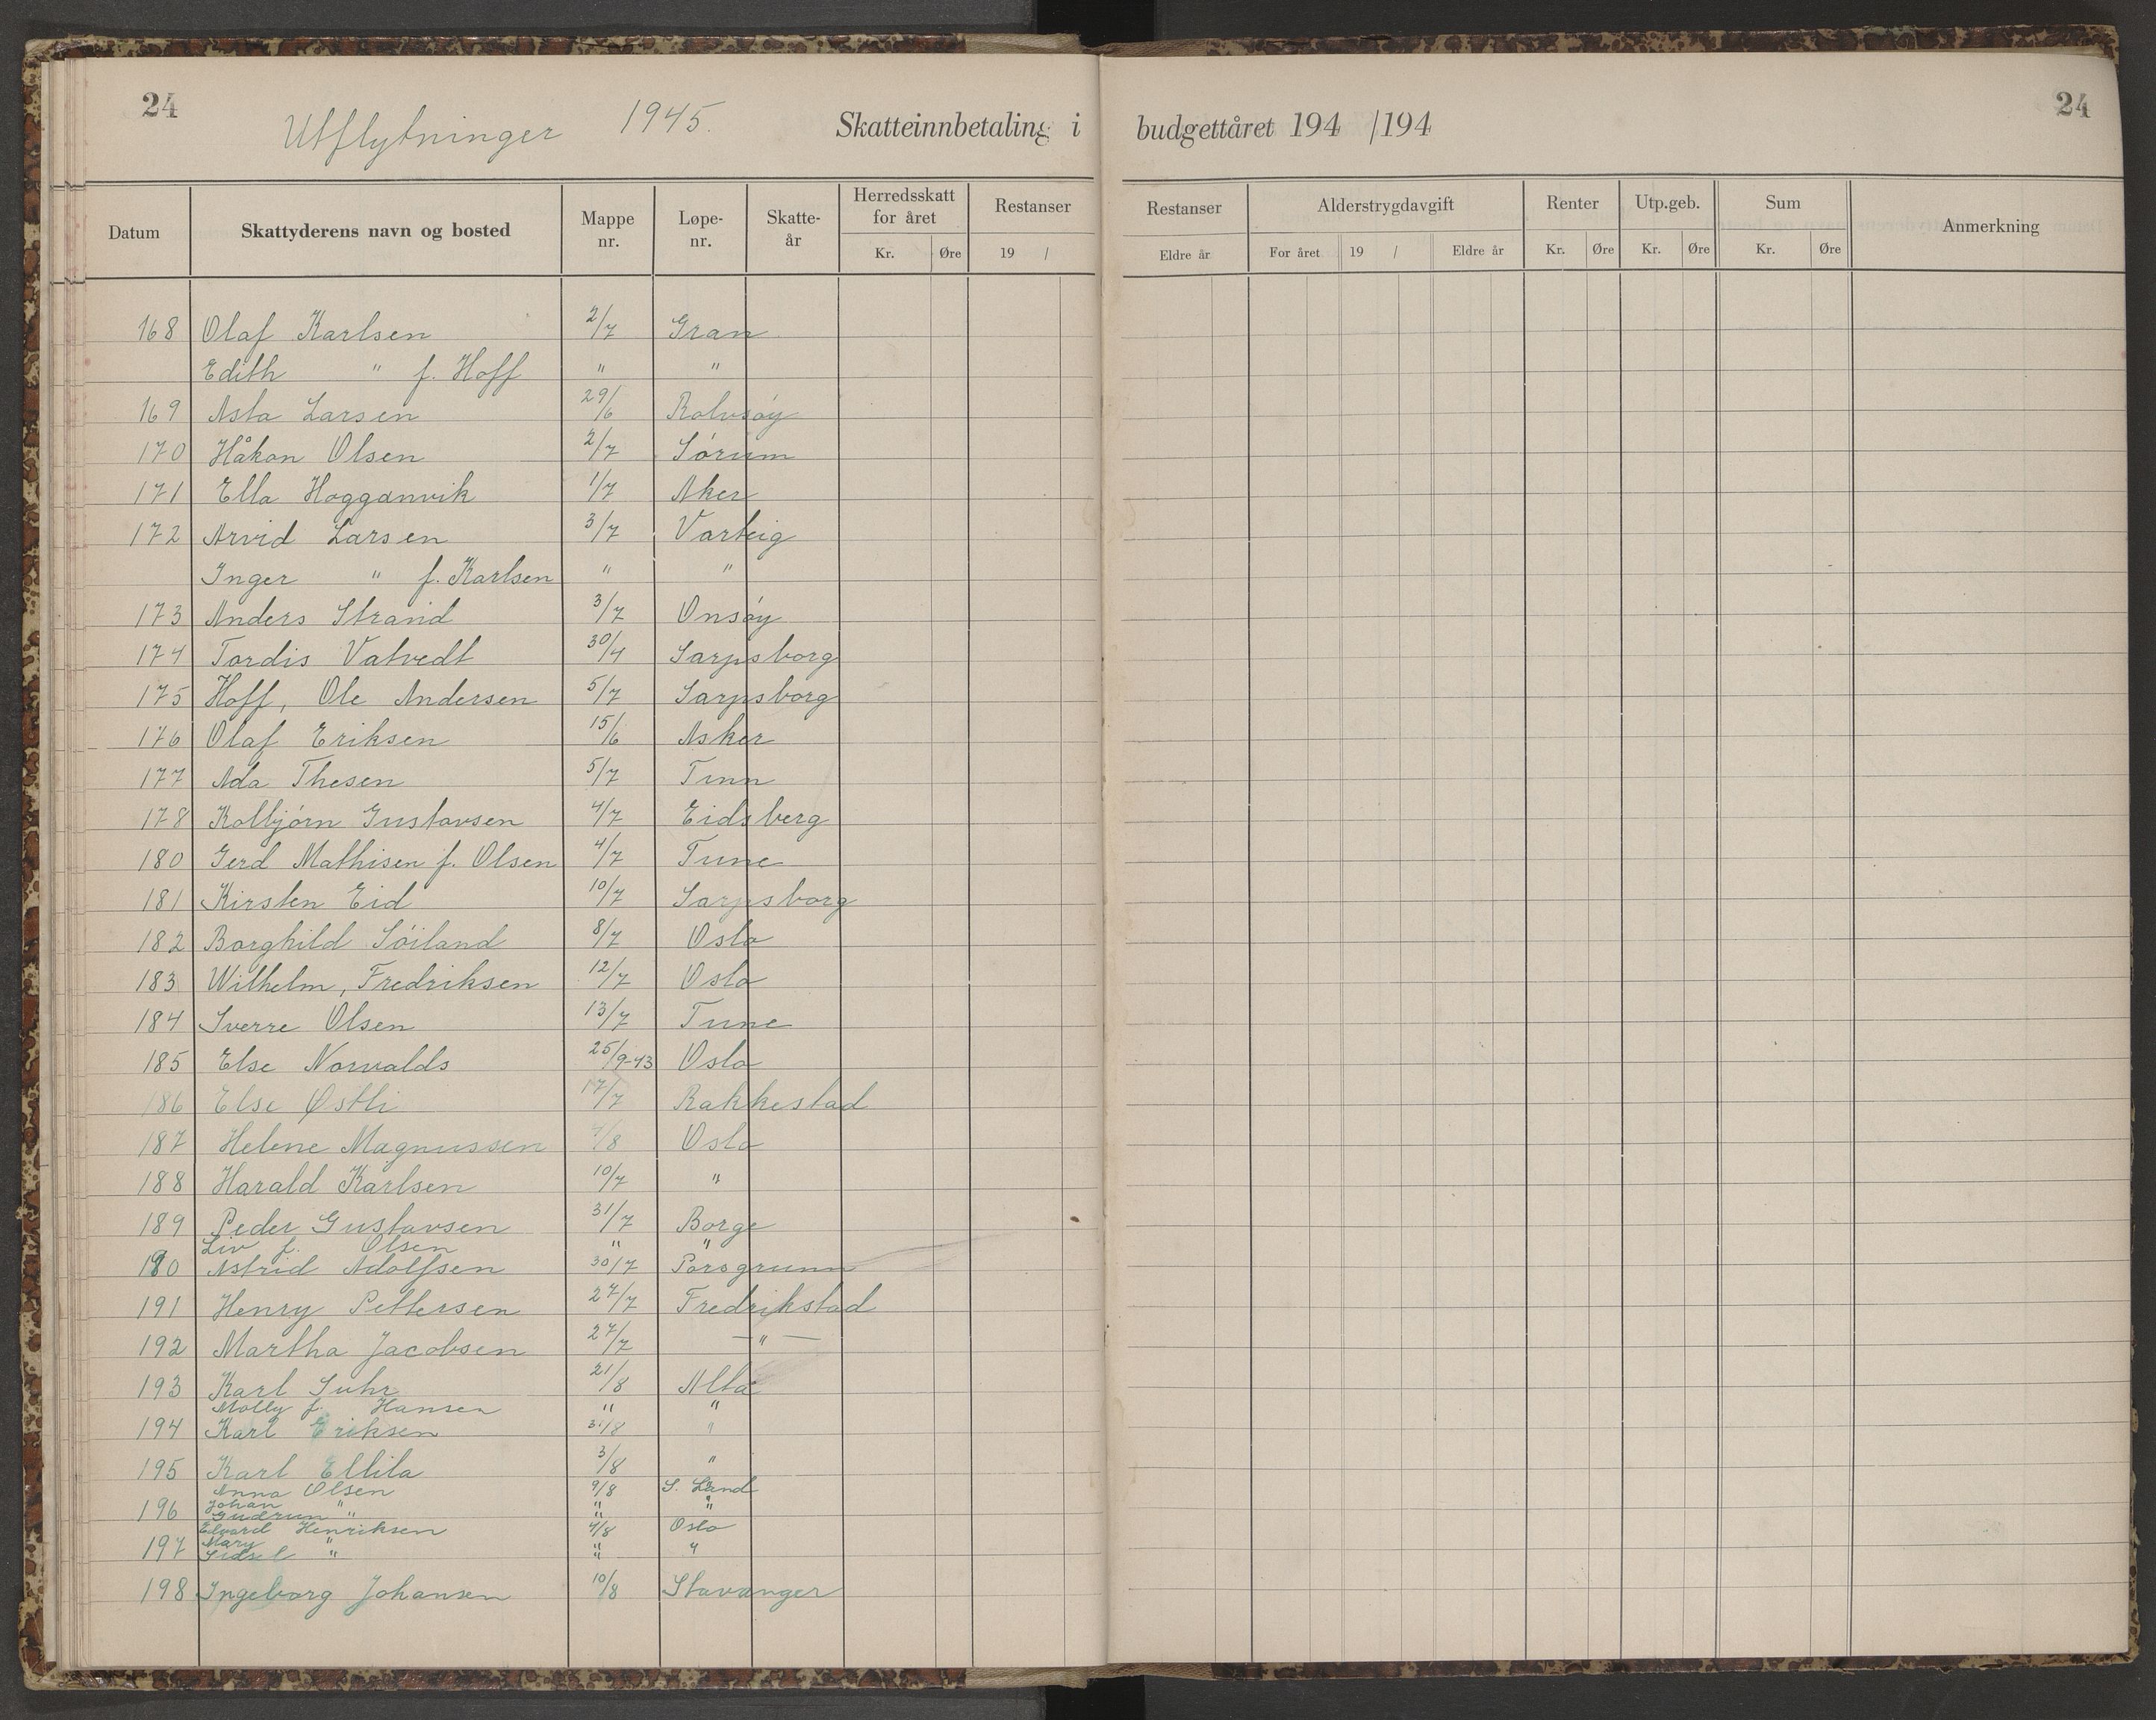 24
Utflytninger 1945.
Skatteinnbetaling i budgettåret 194 /194
24
Datum Skattyderens navn og bosted Mappe nr. Løpe-nr. Skatte-år Herredsskatt for året Kr. Øre Restanser 19 / Restanser Eldre år Alderstrygdavgift For året 19 / Eldre år Renter Kr. Øre Utp.geb. Kr. Øre Sum Kr. Øre Anmerkning
168 Olaf Karlsen 2/7 Gran
Edith " f. Hoff " "
169 Asta Larsen 29/6 Rolvsøy
170 Håkon Olsen 2/7 Sørum
171 Ella Hogganvik 1/7 Aker
172 Arvid Larsen 3/7 Varteig
Inger " f. Karlsen " "
173 Anders Strand 3/7 Onsøy
174 Tordis Vatvedt 30/4 Sarpsborg
175 Hoff, Ole Andersen 5/7 Sarpsborg
176 Olaf Eriksen 15/6 Asker
177 Ada Thesen 5/7 Tinn
178 Kolbjørn Gustavsen 4/7 Eidsberg
180 Gerd Mathisen f. Olsen 4/7 Tune
181 Kirsten Eid 10/7 Sarpsborg
182 Borghild Søiland 8/7 Oslo
183 Wilhelm, Fredriksen 12/7 Oslo
184 Sverre Olsen 13/7 Tune
185 Else Norvalds 25/9-43 Oslo
186 Else Østli 17/7 Rakkestad
187 Helene Magnussen 7/8 Oslo
188 Harald Karlsen 10/7 "
189 Peder Gustavsen 31/7 Borge
Liv f. Olsen " "
190 Astrid Adolfsen 30/7 Porsgrunn
191 Henry Pettersen 27/7 Fredrikstad
192 Martha Jacobsen 27/7 — " —
193 Karl Suhr 21/8 Alta
Molly f. Hansen " "
194 Karl Eriksen 31/8 "
195 Karl Ellila 3/8 "
Anna Olsen 9/8 S. Land
196 Johan " " "
Gudrun " "
Edvard Henriksen 4/8 Oslo
197 Mary " " "
Sidsel " "
198 Ingeborg Johansen 10/8 Stavanger